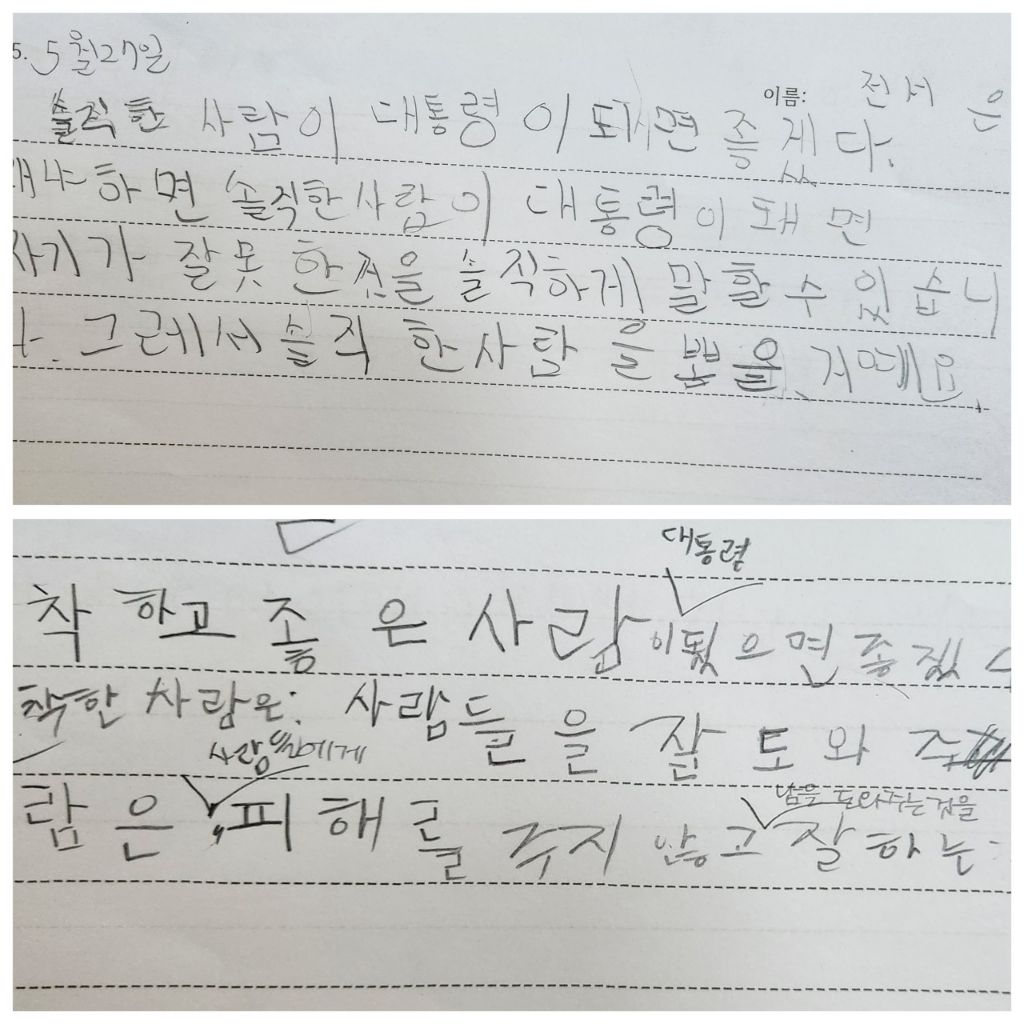 5. 5월27일
이름: 전서은
솔직한 사람이 대통령이 돼면 좋겠다.
냐하면 솔직한사람이 대통령이 돼면
자기가 잘못 한것을 솔직하게 말할수 있습니
그레서 솔직 한사람을 뽑을 거예요.
대통령
착하고 좋은 사람이됬으면 좋겠
착한 사람은: 사람들을 잘 도와 주
사람들에게 남을 도와주는것을
람은 피해를 주지 않고 잘 하는